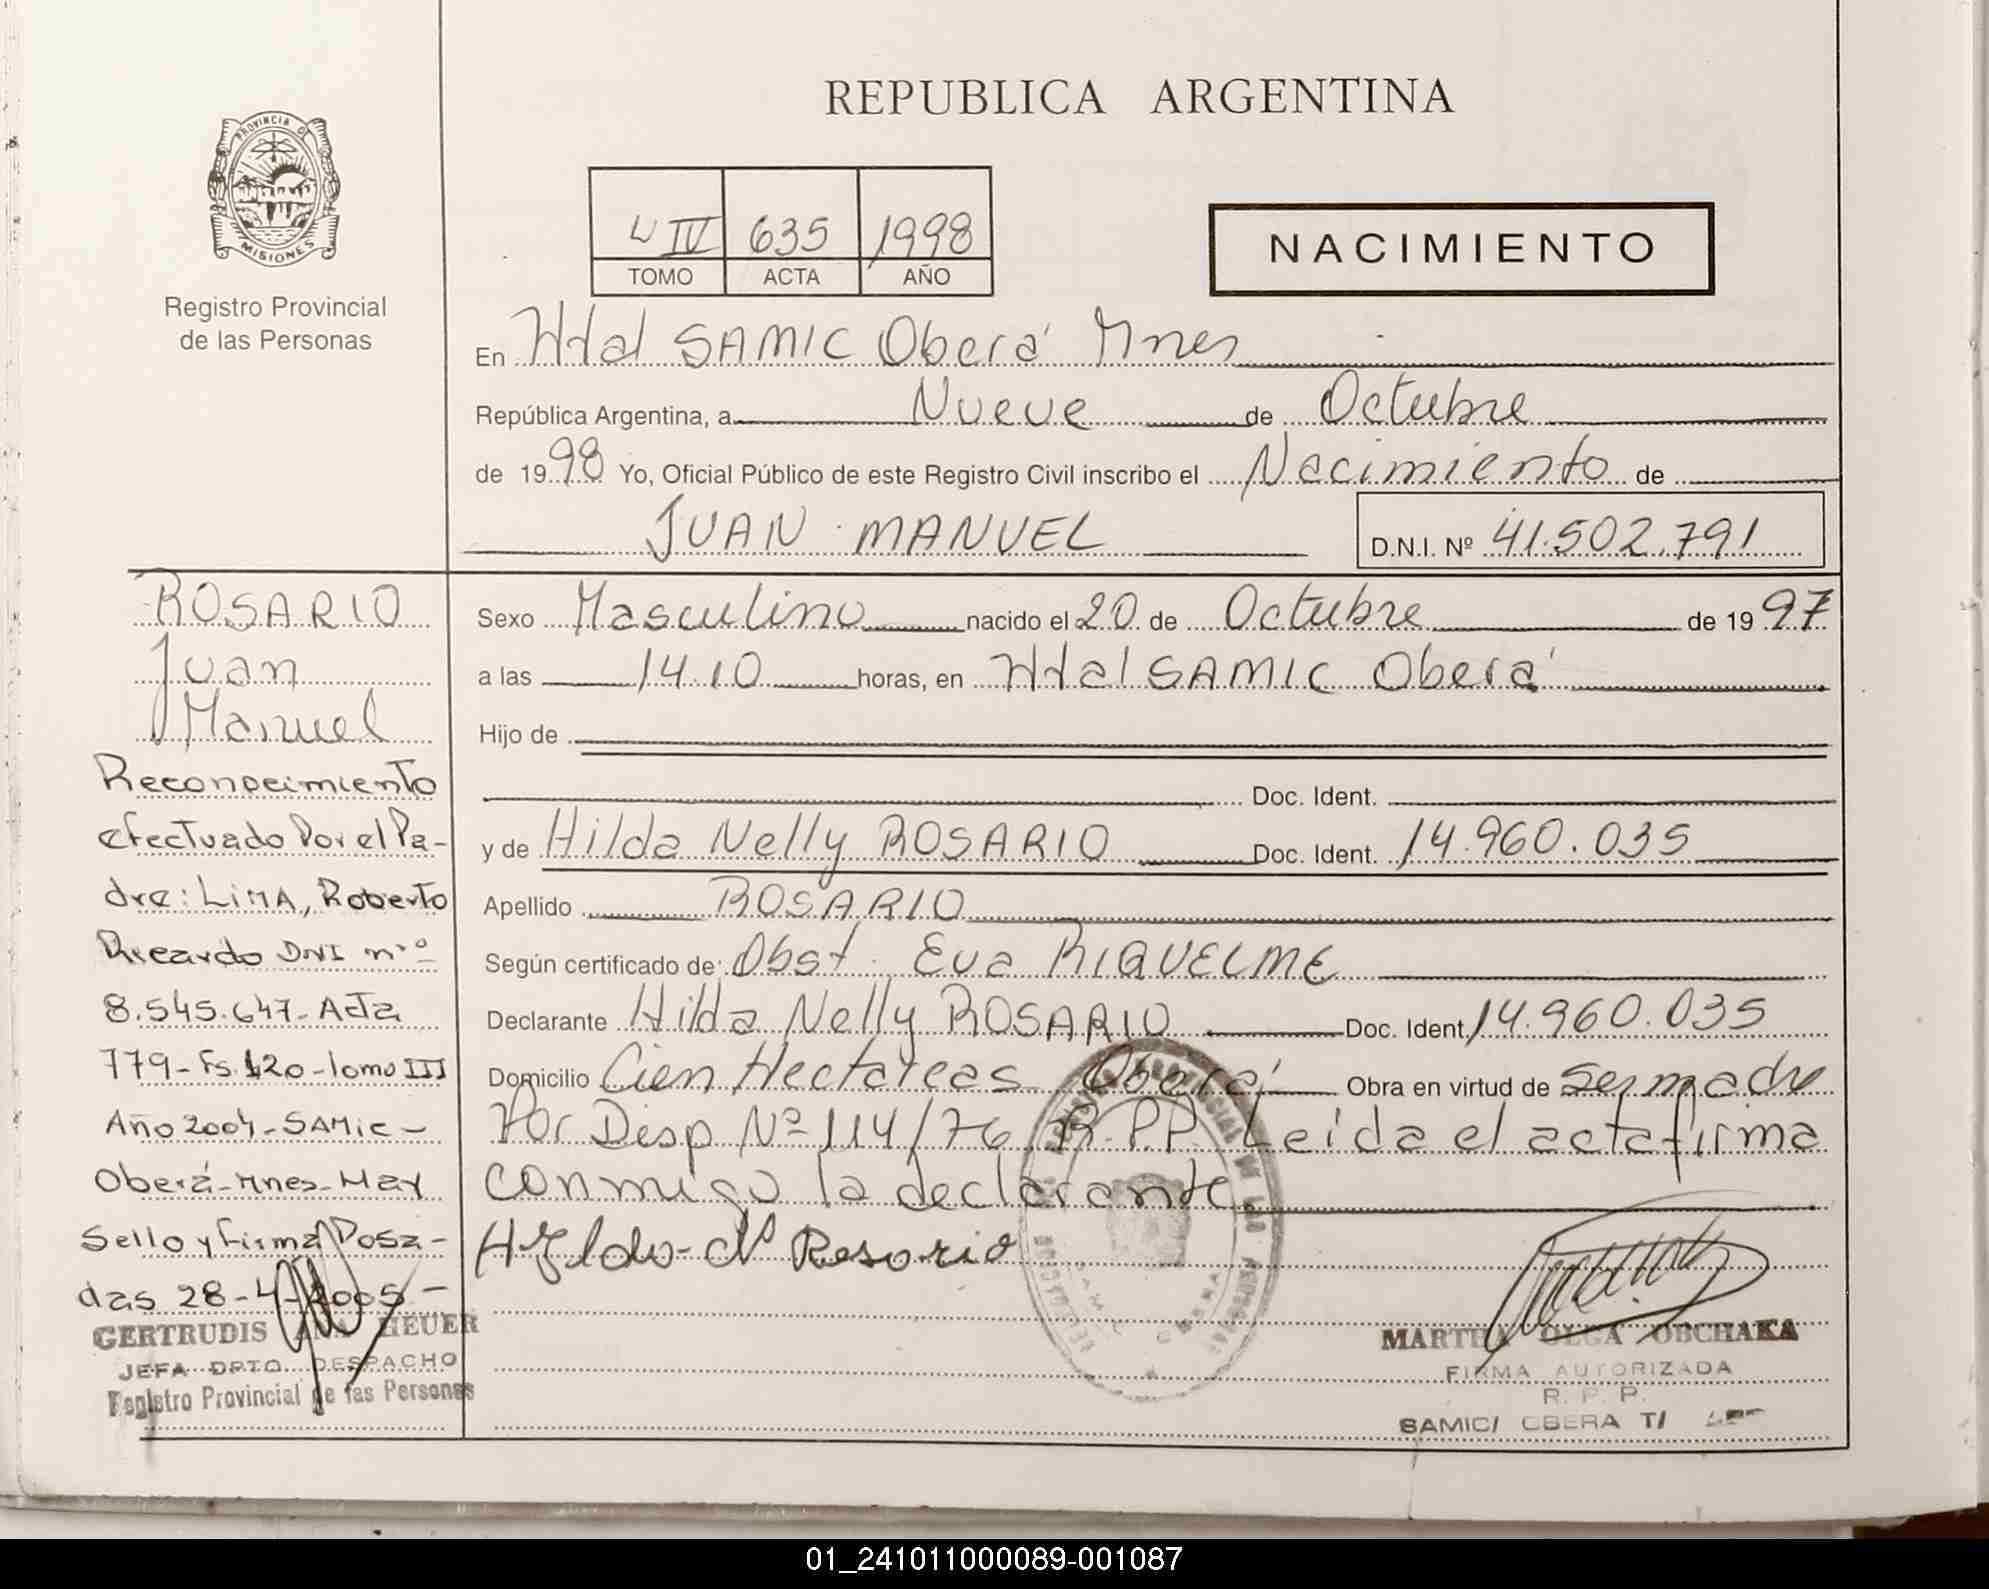 REPUBLICA ARGENTINA
PROVINCIA DE
MISIONES
Registro Provincial
de las Personas
L IV 635 1998
TOMO ACTA AÑO
NACIMIENTO
En Htal SAMIC Oberá Mnes
República Argentina, a Nueve de Octubre
de 1998 Yo, Oficial Público de este Registro Civil inscribo el Nacimiento de
JUAN MANUEL D.N.I. Nº 41.502.791
Sexo Masculino nacido el 20 de Octubre de 1997
a las 14.10 horas, en Htal SAMIC Oberá
Hijo de
Doc. Ident.
y de Hilda Nelly ROSARIO Doc. Ident. 14.960.035
Apellido ROSARIO
Según certificado de: Obst. Eva RIQUELME
Declarante Hilda Nelly ROSARIO Doc. Ident. 14.960.035
Domicilio Cien Hectareas Oberá Obra en virtud de ser madre
Por Disp Nº 114/76 R.P.P. Leída el acta firma
conmigo la declarante
Rosario
MARTHA OLGA OBCHAKA
FIRMA AUTORIZADA
R. P. P.
SAMIC/ OBERA T/
ROSARIO
Juan
Manuel
Reconocimiento
efectuado Por el Pa-
dre: LIMA, Roberto
Ricardo DNI nº
8.545.647- Acta
779- Fs. 120- Tomo III
Año 2004- SAMIC-
Oberá- Mnes- Hay
Sello y firma Posa-
das 28-4-2005-
GERTRUDIS ANA HEUER
JEFA DPTO. DESPACHO
Registro Provincial de las Personas
01_241011000089-001087